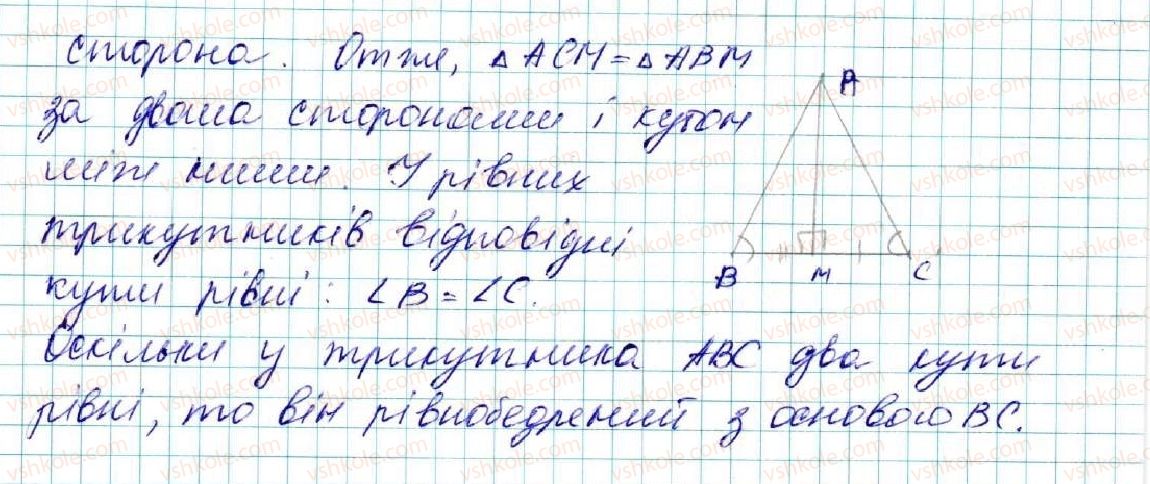 сторона. Отже, △ACM=△ABM
за двома сторонами і кутом
між ними. У рівних
трикутників відповідні
кути рівні: ∠B=∠C.
Оскільки у трикутника ABC два кути
рівні, то він рівнобедрений з основою BC.
A
B M C
vshkole.com